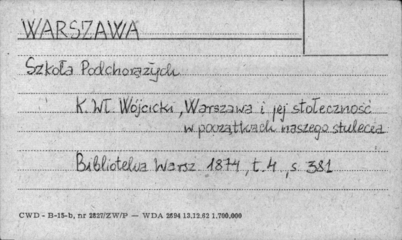 WARSZAWA
Szkoła Podchorążych
K. Wł. Wójcicki, Warszawa i jej stołeczność
w początkach naszego stulecia
Biblioteka Warsz. 1874, t. 4, s. 381
CWD - B-15-b, nr 2827/ZW/P — WDA 2894 13.12.62 1.700.000